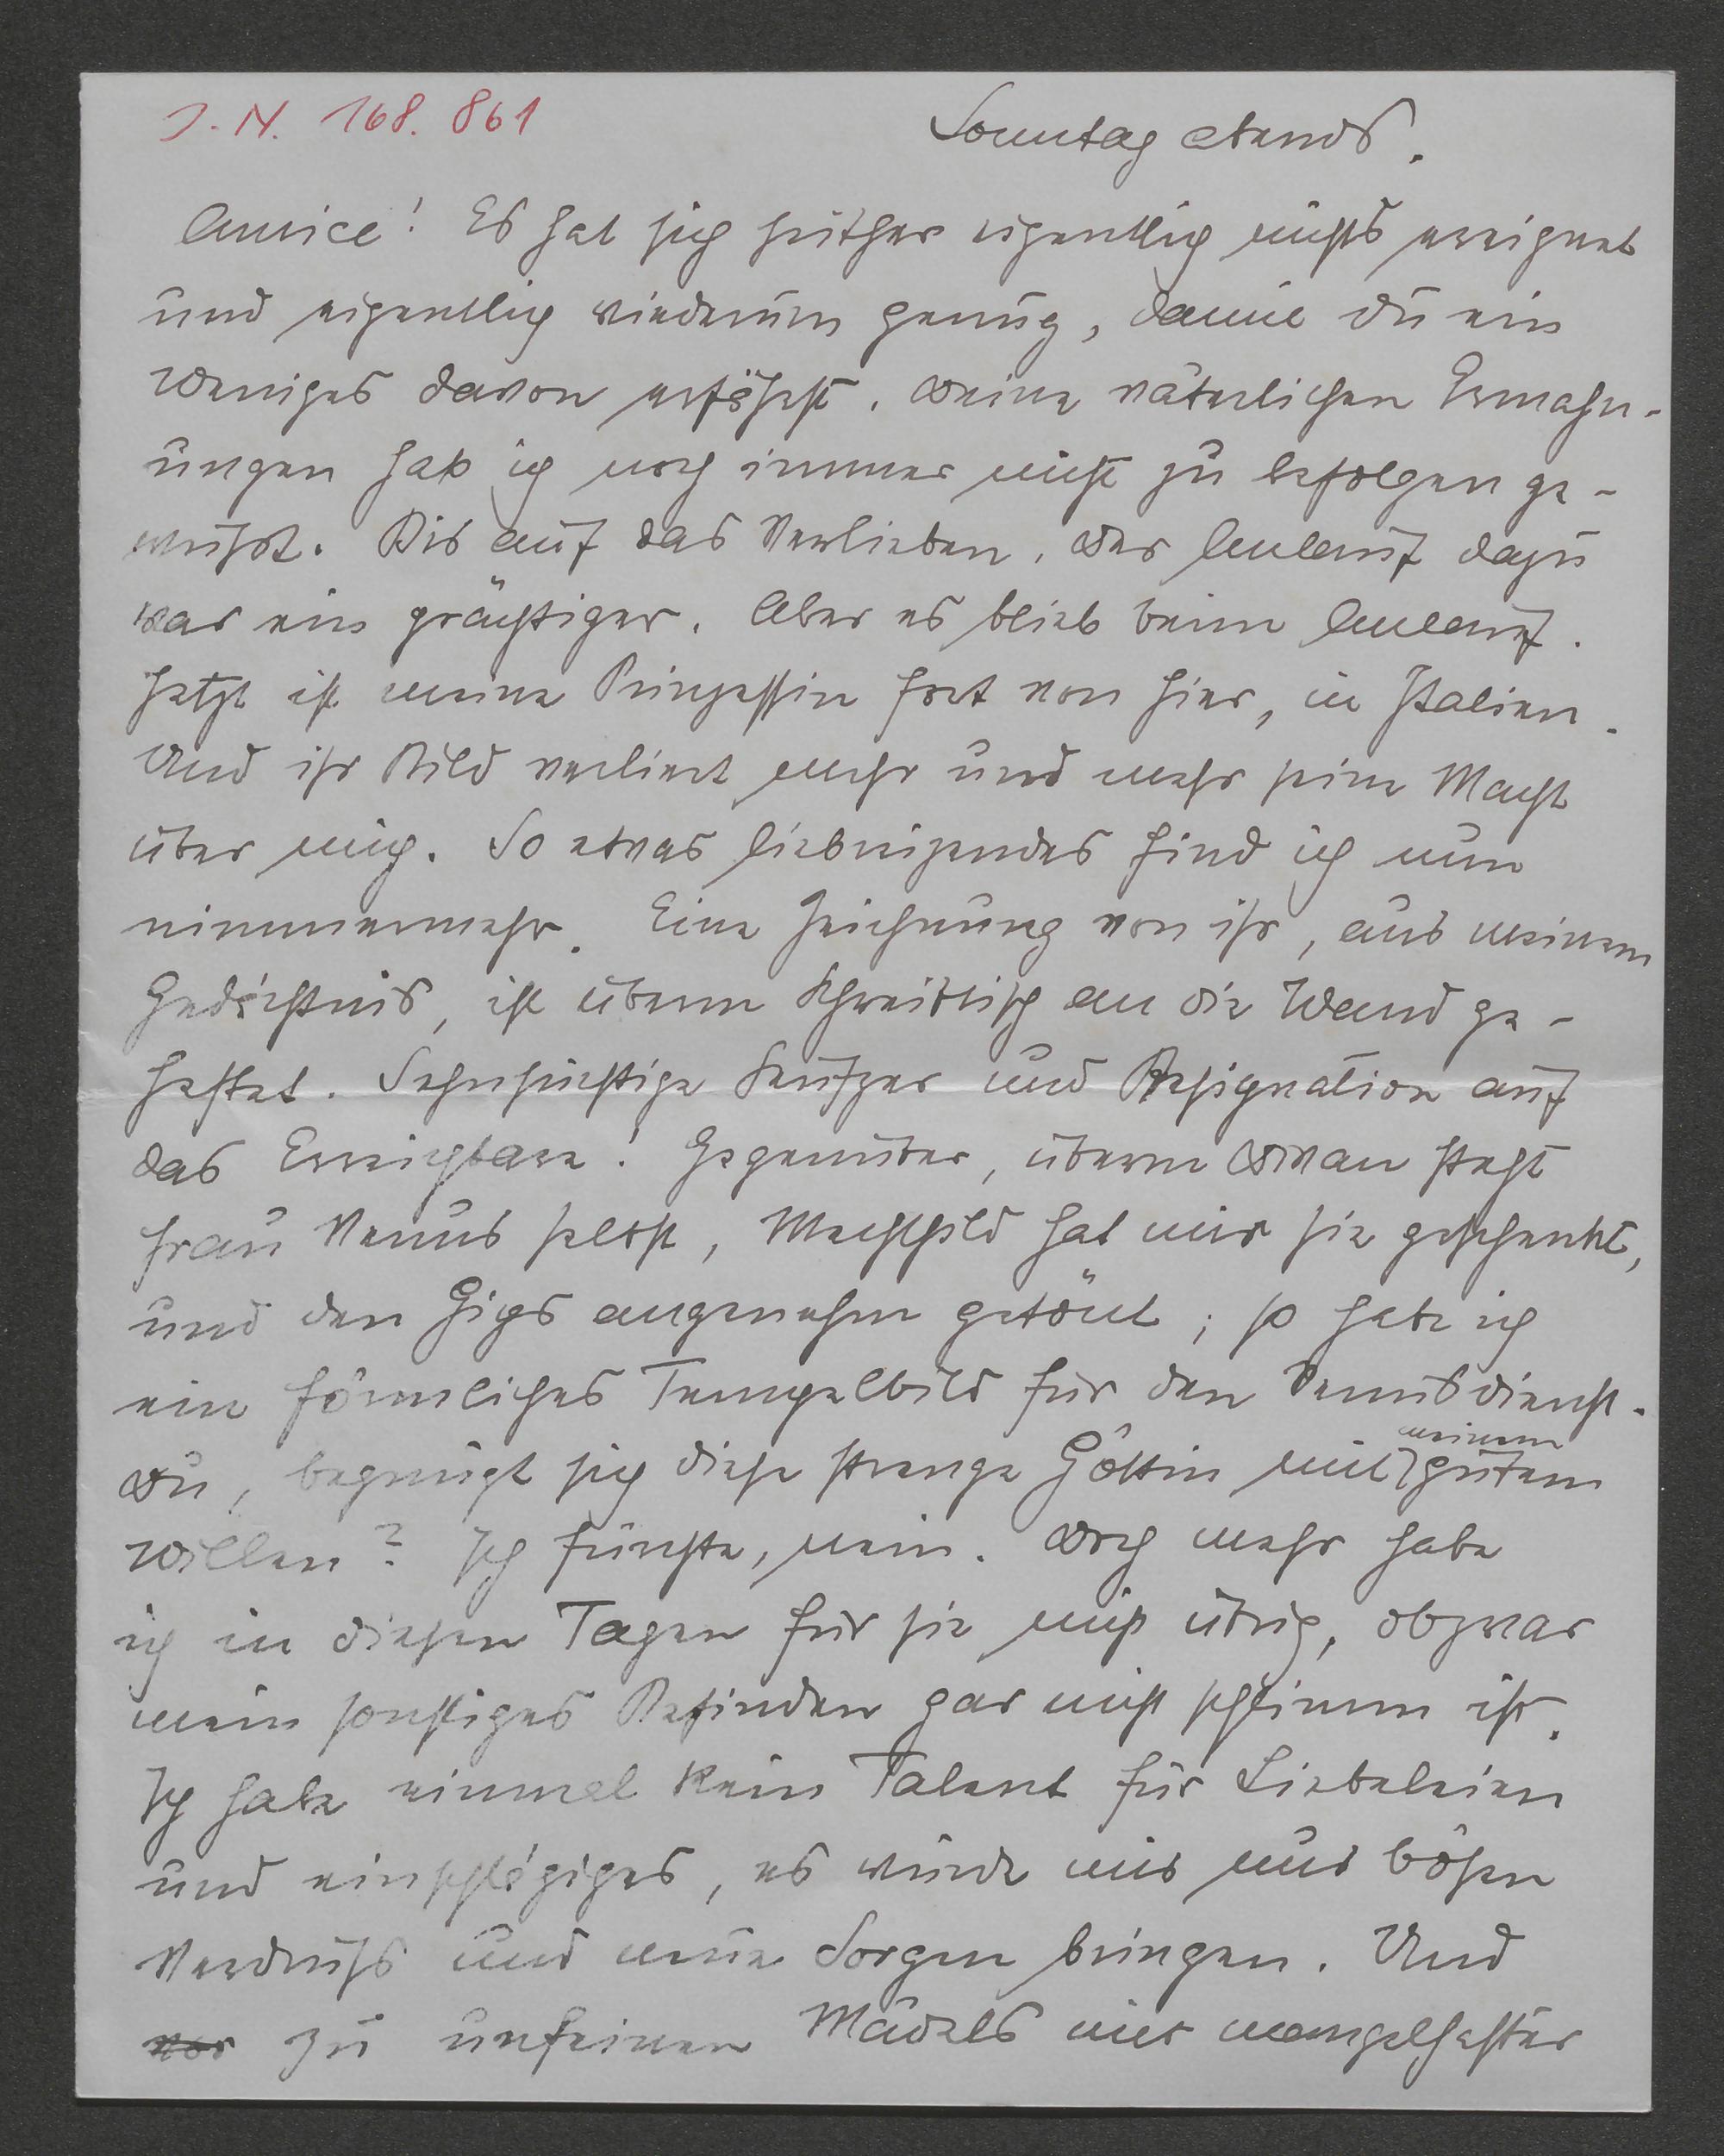 J. N. 168.861
Sonntag abends.
Amice! Es hat sich seither eigentlich nichts ereignet
und eigentlich wiederum genug, damit du ein
Weniges davon erfährst. Deine väterlichen Ermahn-
ungen hab ich noch immer nicht zu befolgen ge-
wußt. Bis auf das Verlieben. Der Anlauf dazu
war ein prächtiger. Aber es blieb beim Anlauf.
Jetzt ist meine Prinzessin fort von hier, in Italien.
Und ihr Bild verliert mehr und mehr seine Macht
über mich. So etwas liebreizendes find ich nun
nimmermehr. Eine Zeichnung von ihr, aus meinem
Gedächtnis, ist überm Schreibtisch an die Wand ge-
heftet. Sehnsüchtige Seufzer und Resignation auf
das Erreichbare! Gegenüber, überm Divan steht
Frau Venus selbst, Mechthild hat mir sie geschenkt,
und den Gips angenehm getönt; so habe ich
ein förmliches Tempelbild für den Venusdienst.
Du, begnügt sich diese strenge Göttin mit meinem gutem
Willen? Ich fürchte, nein. Doch mehr habe
ich in diesen Tagen für sie nicht übrig, obzwar
mein sonstiges Befinden gar nicht schlimm ist.
Ich habe einmal kein Talent für Liebeleien
und einschlägiges, es würde mir nur bösen
Verdruß und neue Sorgen bringen. Und
vor zu unfeinen Mädels mir mangelhafter